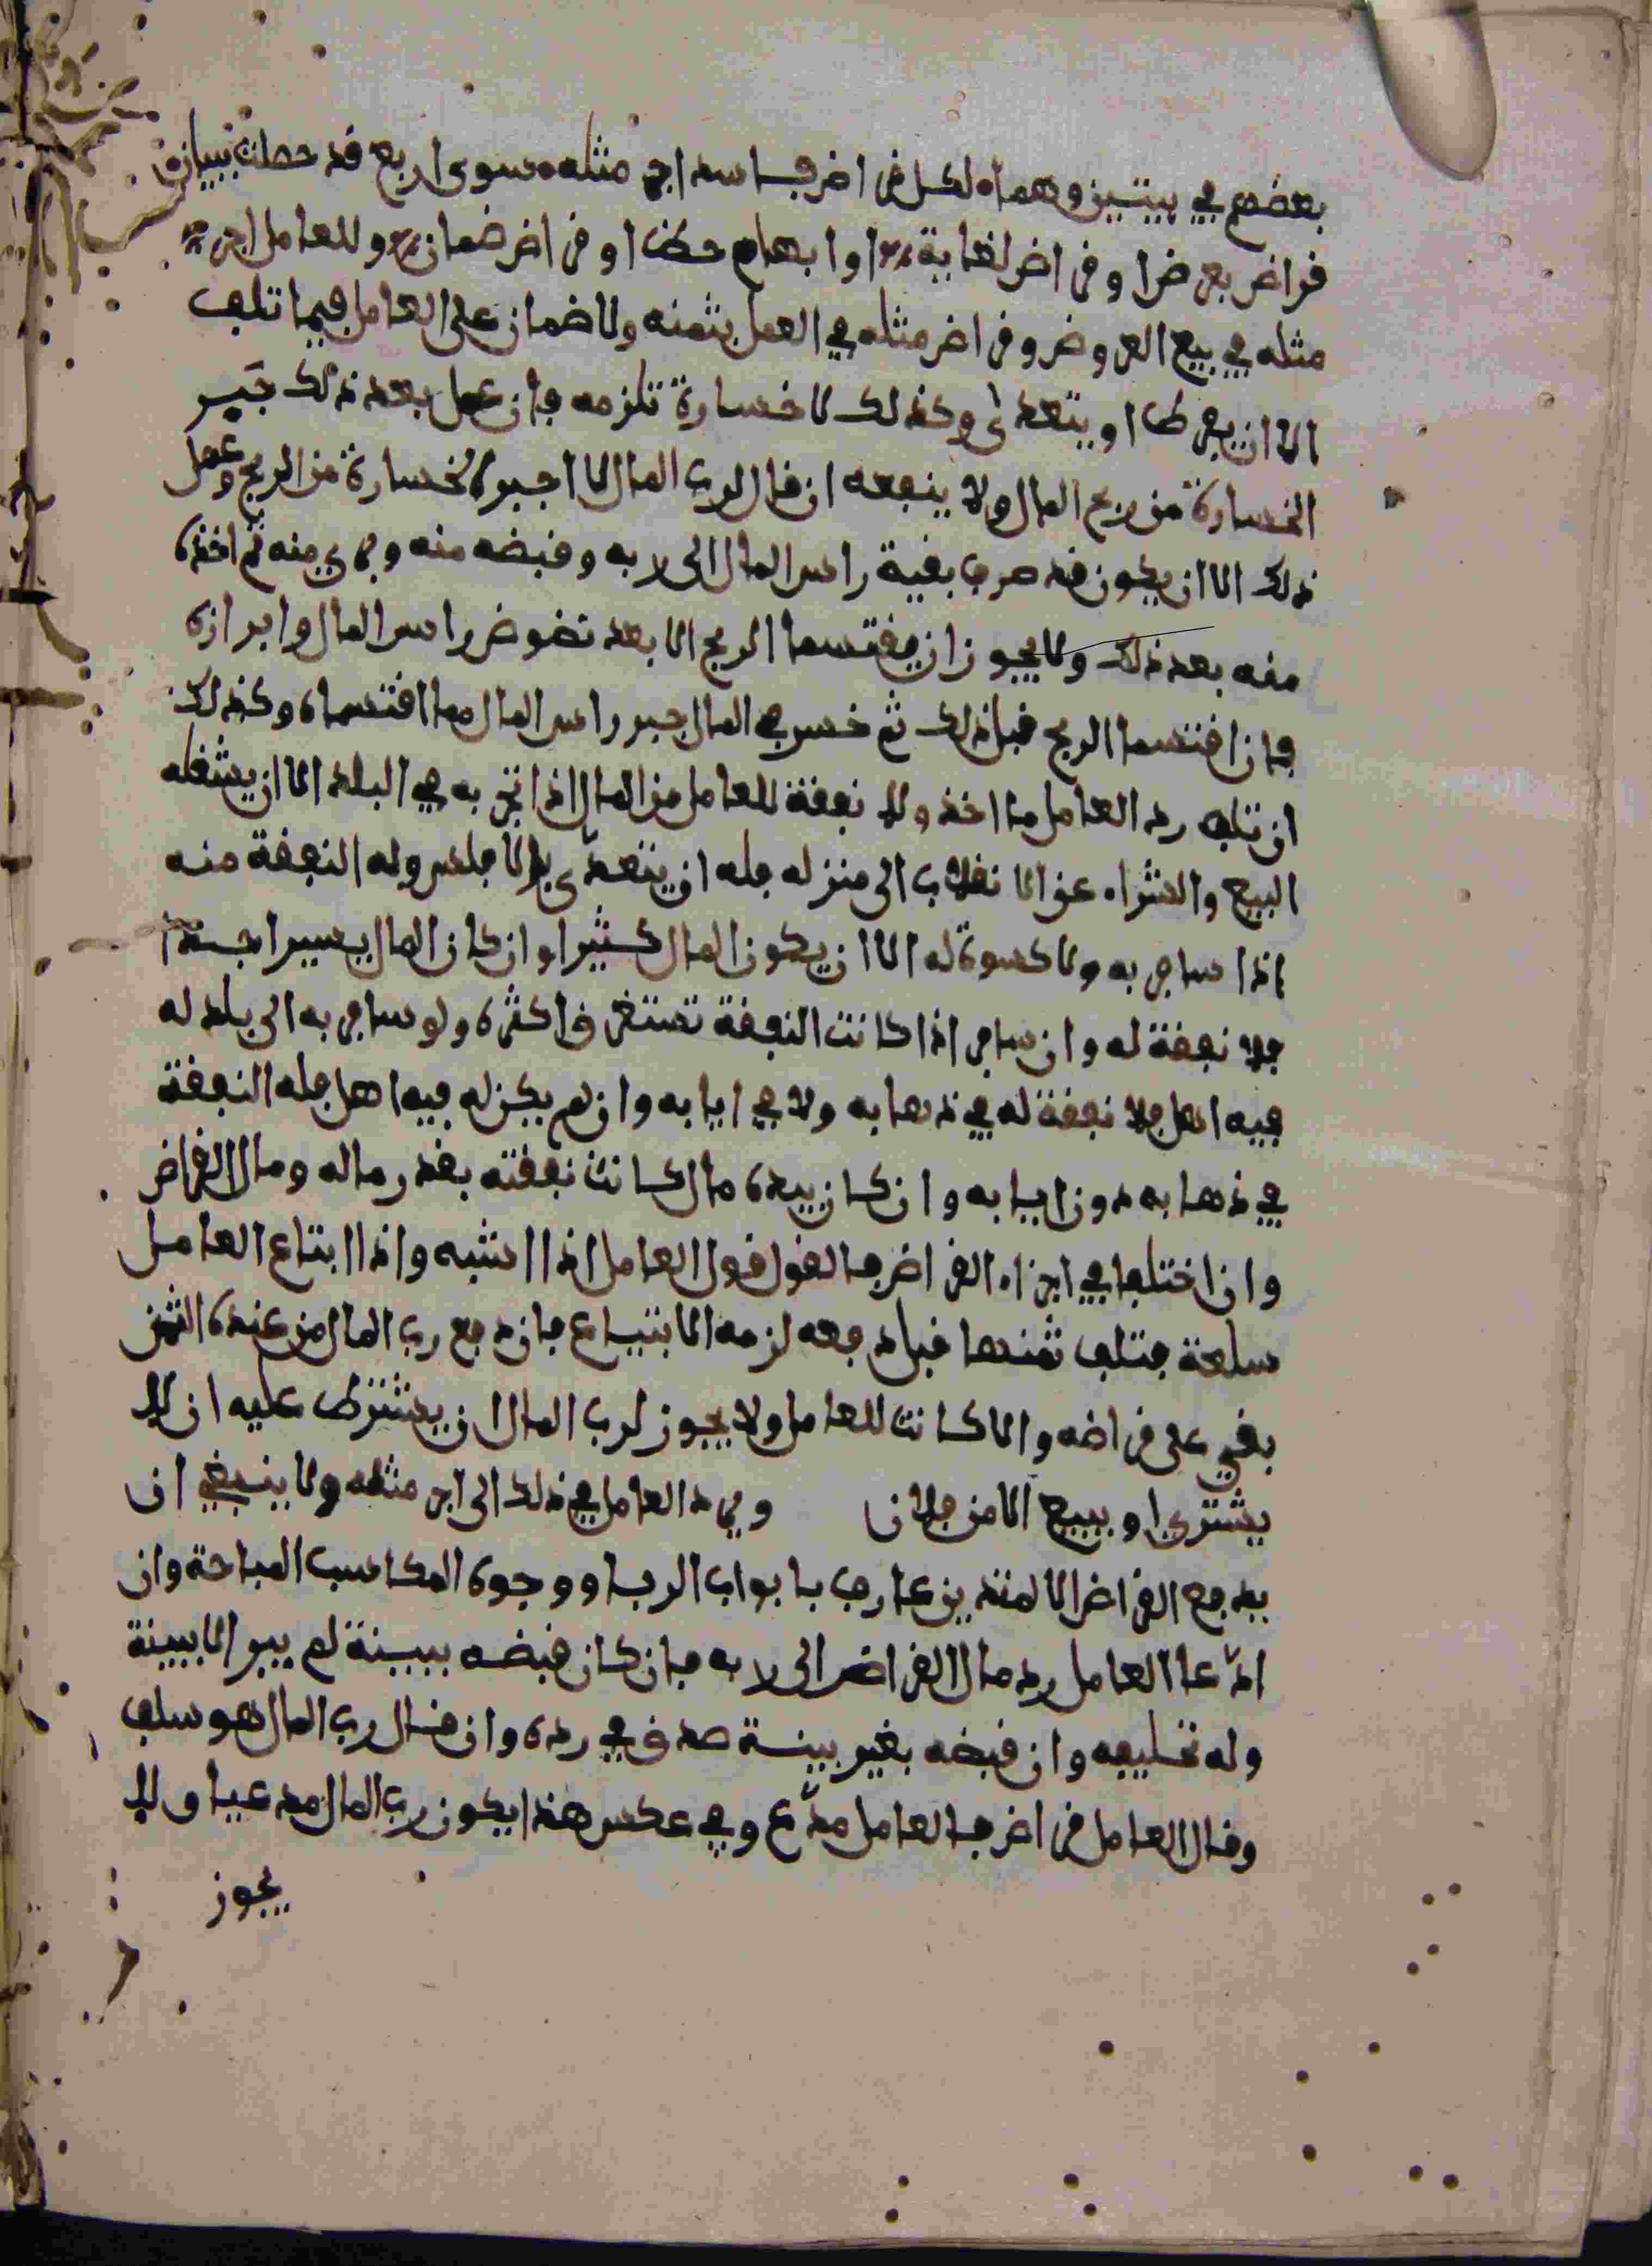 بعضهم في بيتين وهما لكل قراض فاسد اجر مثله سوى اربع قد خصصت ببيان
قراض بعرض او قراض لغاية او ابهام حظ او قراض ضمان وللعامل اجر
مثله في بيع العروض وقراض مثله في العمل بثمنه ولا ضمان على العامل فيما تلف
الا ان يفرط او يتعدى وكذلك لا خسارة تلزمه فان عمل بعد ذلك جبر
الخسارة من ربح المال ولا ينفعه ان قال لرب المال لا اجبر الخسارة من الربح وعمل
ذلك الا ان يكون قد صرف بقية راس المال الى ربه وقبضه منه وبرى منه ثم اخذه
منه بعد ذلك ولا يجوز ان يقتسما الربح الا بعد نضوض راس المال وابرازه
فان اقتسما الربح قبل ذلك ثم خسر في المال جبر راس المال مما اقتسماه وكذلك
ان تلف رد العامل ما اخذ ولا نفقة للعامل من المال اذا تجر به في البلد الا ان يشغله
البيع والشراء عن الانقلاب الى منزله فله ان يتغدى بالافلس وله النفقة منه
اذا سافر به ولا كسوة له الا ان يكون المال كثيرا وان كان المال يسيرا جدا
فلا نفقة له وان سافر اذا كانت النفقة تستغرق اكثره ولو سافر به الى بلد له
فيه اهل فلا نفقة له في ذهابه ولا في ايابه وان لم يكن له فيه اهل فله النفقة
في ذهابه دون ايابه وان كان بيده مال كانت نفقته بقدر ماله ومال القراض
وان اختلفا في اجزاء القراض فالقول قول العامل اذا اشبه واذا ابتاع العامل
سلعة فتلف ثمنها قبل دفعه لزمه الابتياع فان دفع رب المال من عنده الثمن
بقي على قراضه والا كانت للعامل ولا يجوز لرب المال ان يشترط عليه ان لا
يشتري او يبيع الا من فلان ويرد العامل في ذلك الى اجر مثله ولا ينبغي ان
يدفع القراض الا لمتدين عارف بابواب الربا ووجوه المكاسب المباحة وان
ادّعا العامل رد مال القراض الى ربه فان كان قبضه ببينة لم يبر الا ببينة
وله تحليفه وان قبضه بغير بينة صدق في رده وان قال رب المال هو سلف
وقال العامل قراض فالعامل مدّع وفي عكس هذا يكون رب المال مدعيا ولا
يجوز